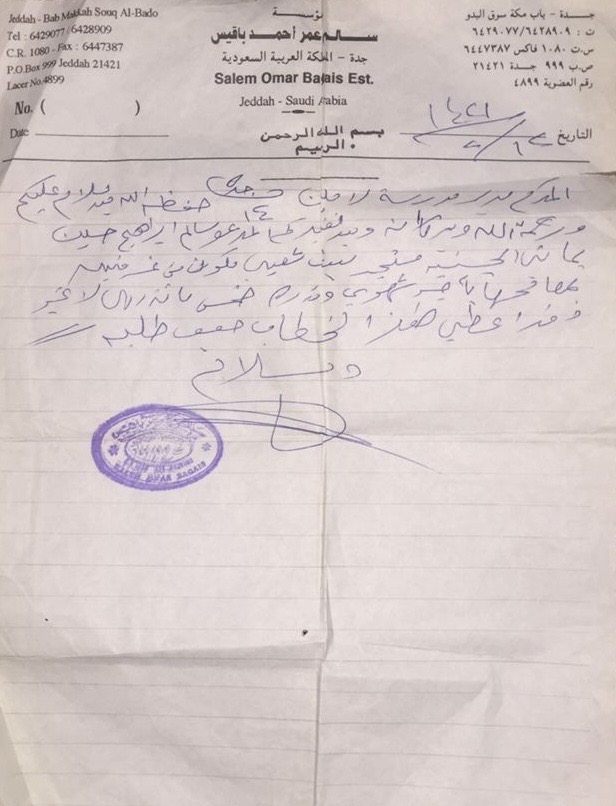 Jeddah - Bab Makkah Souq Al-Bado
Tel : 6429077 / 6428909
C.R. 1080 - Fax : 6447387
P.O.Box 999 Jeddah 21421
Lacer No.4899
No. (          )
Date
مؤسسة
سالم عمر أحمد باقيس
جدة - المملكة العربية السعودية
Salem Omar Bajais Est.
Jeddah - Saudi Arabia
بسم الله الرحمن الرحيم
جدة - باب مكة سوق البدو
ت : ٦٤٢٩٠٧٧/٦٤٢٨٩٠٩
س.ت ١٠٨٠ فاكس ٦٤٤٧٣٨٧
ص.ب ٩٩٩ جدة ٢١٤٢١
رقم العضوية ٤٨٩٩
التاريخ
المكرم مدير مدرسة حفظه الله السلام عليكم
ورحمة الله وبركاته المدعو سالم ابراهيم حسين
الجنسية بيت شعبي مكون من غرفتين
شهري وقدره خمس مائة ريال لا غير
وقد اعطي هذا الخطاب حسب طلبه
والسلام
SALEM OMAR BAGAIS